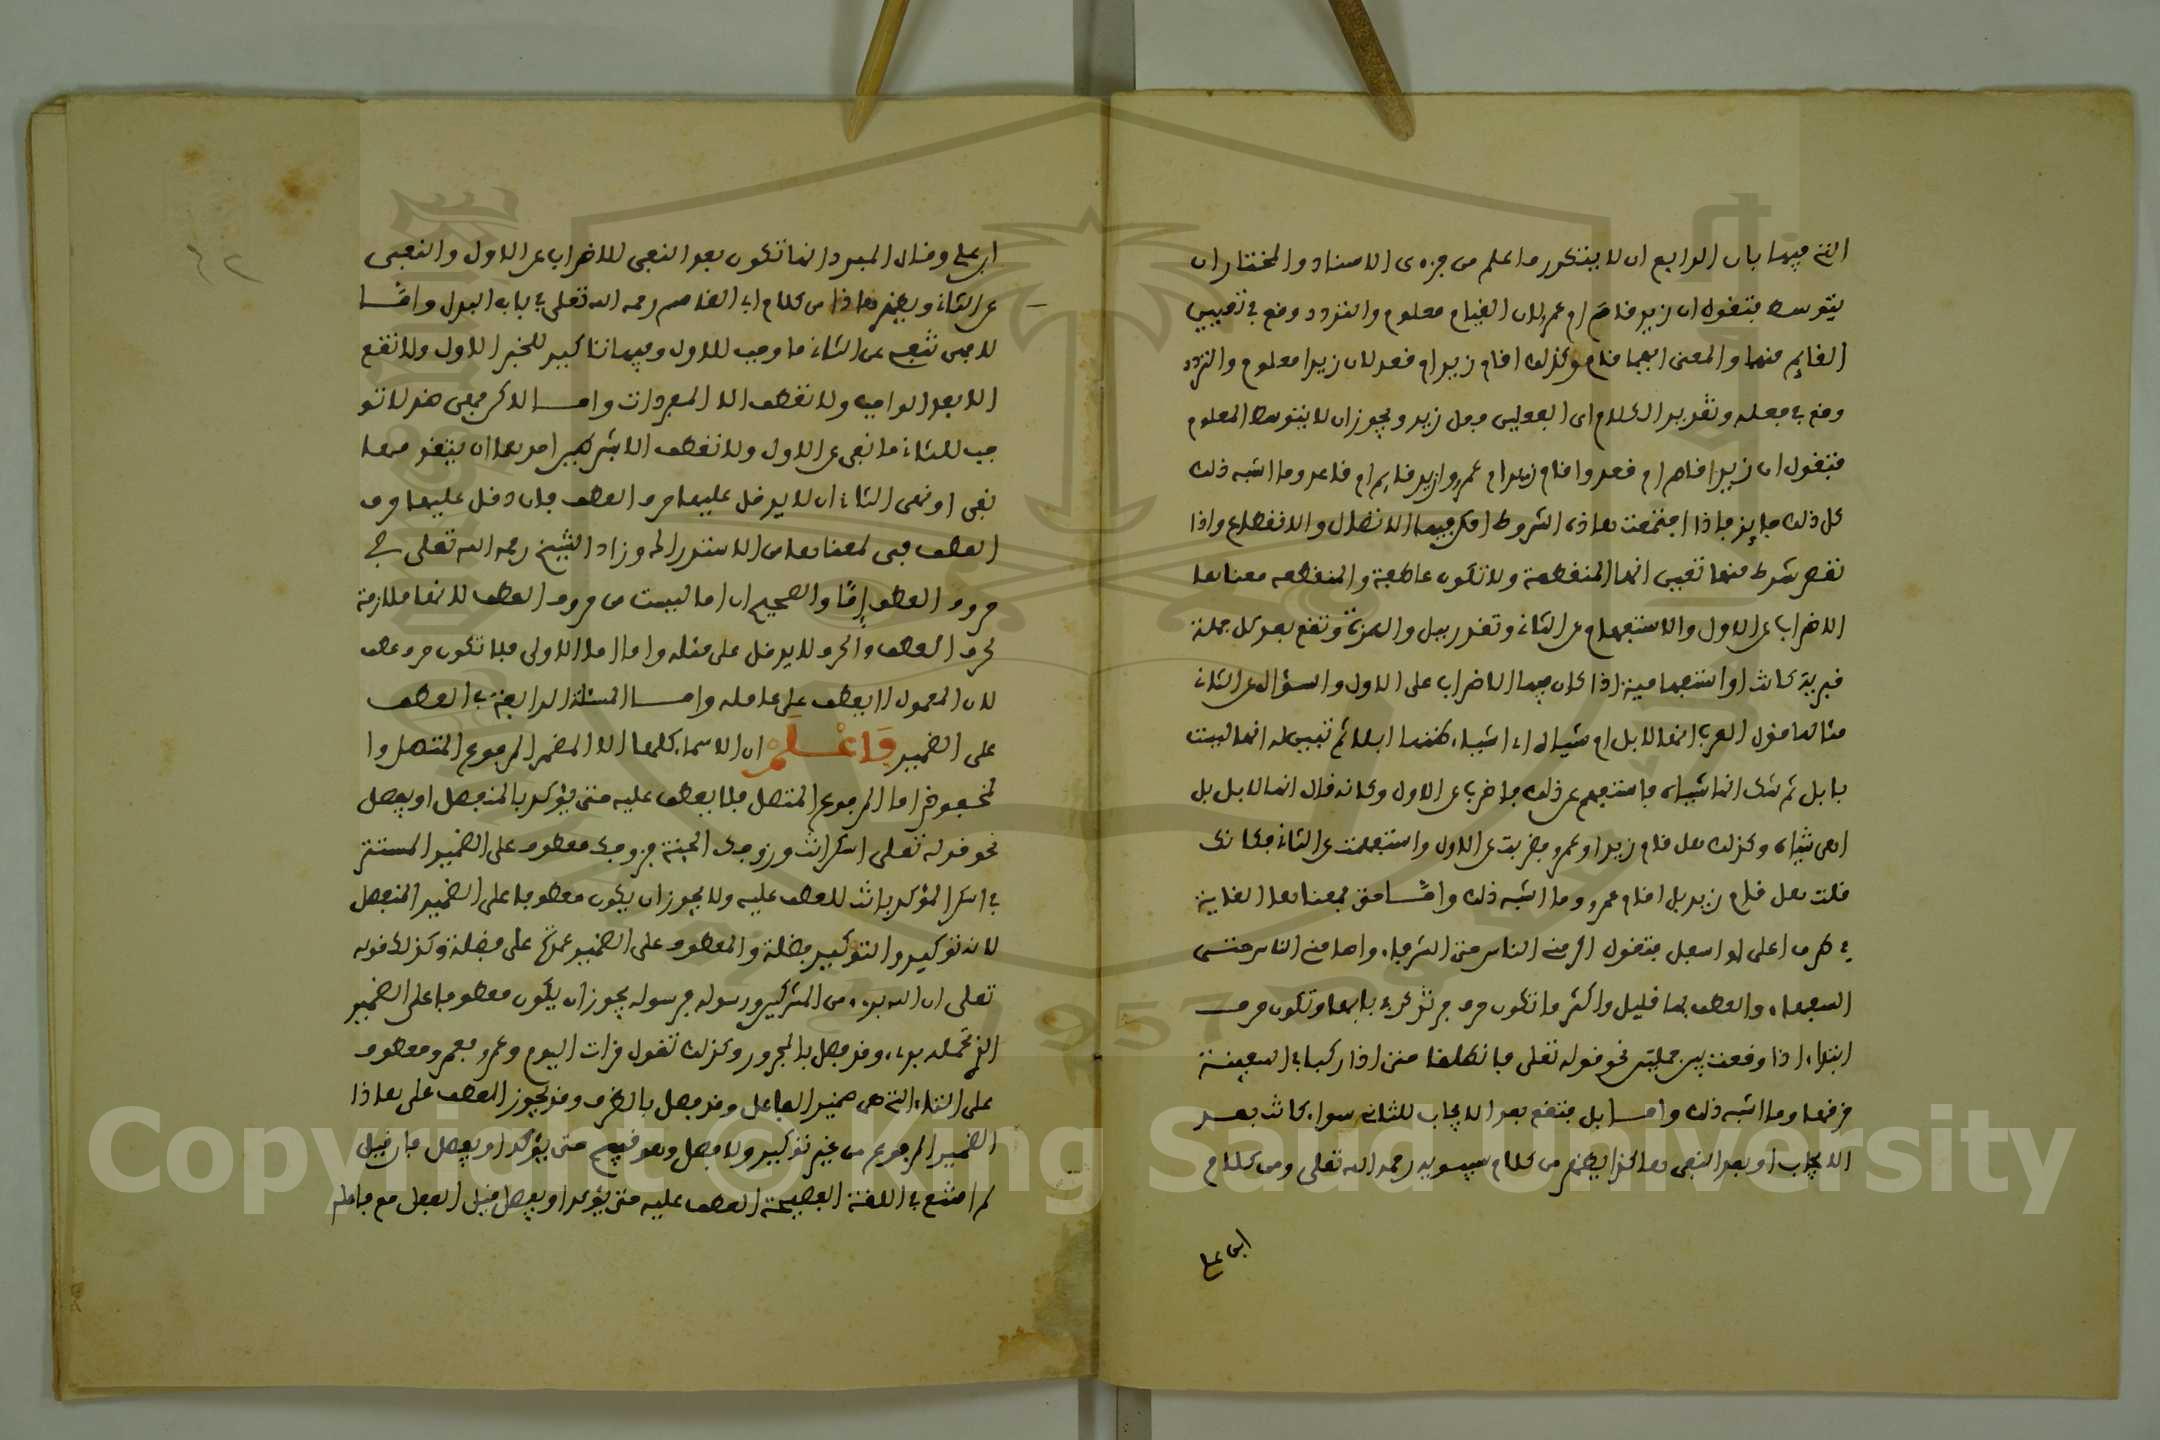 التي فيها بان الرابع ان لا يتكرر ما علم من جزءى الاسناد والمختار ان
يتوسط فتقول ان زيد قام ام عمرو لان القيام معلوم والتردد وقع في تعيين
القايم منهما والمعنى ايهما قام وكذلك اقام زيد ام قعد لان زيدا معلوم والتردد
وقع في فعله وتقدير الكلام اى الفعلين فعل زيد ويجوز ان لا يتوسط المعلوم
فتقول ان زيدا قام ام قعد واقام زيد ام عمرو وازيد قايم ام قاعد وما اشبه ذلك
كل ذلك جايز فاذا اجتمعت هاذه الشروط امكن فيها الاتصال والانقطاع واذا
نقص شرط منها تعين انها المنقطعة ولا تكون عاطفة والمنقطعة معناها
الاضراب عن الاول والاستفهام عن الثاني وتقدر ببل والهمزة وتقع بعد كل جملة
خبرية كانت او استفهامية اذا كان فيها الاضراب على الاول والسؤال عن الثاني
مثالها قول العرب انها لابل ام شياه اى اشياء ظنها ابلا ثم تبين له انها ليست
بابل ثم شك انها شياه فاستفهم عن ذلك فاضرب عن الاول وكانه قال انها لابل بل
اهى شياه وكذلك هل قام زيد او عمرو فضربت عن الاول واستفهمت عن الثاني فكانك
قلت هل قام زيد بل اقام عمرو وما اشبه ذلك وامّا حتى فمعناها الغاية
في طرف اعلى او اسفل فتقول اكرمني الناس حتى الشرفاء واهانني الناس حتى
السفهاء والعطف بها قليل واكثر ما تكون حرف جر تذكر في بابها وتكون حرف
ابتداء اذا وقعت بين جملتين نحو قوله تعلى فانطلقا حتى اذا ركبا في السفينة
خرقها وما اشبه ذلك وامـا بل فتقع بعد الايجاب للثاني سواء كانت بعد
الايجاب او بعد النفى هاكذا يظهر من كلام سيبويه رحمه الله تعلى ومن كلام
ابى على
ابى على وقال المبرد انما تكون بعد النفى للاضراب عن الاول والنفى
عن الثاني ويظهر هاذا من كلام ابى القاسم رحمه الله تعلى في باب البدل وامّا
لا فهى تنفى عن الثاني ما وجب للاول وفيها تاكيد للخبر الاول ولا تقع
الا بعد الواجب ولا تعطف الا المفردات وامـا لاكن فهى ضد لا تو
جب للثاني ما نفى عن الاول ولا تعطف الا بشرطين احدهما ان يتقدمها
نفى او نهى الثاني ان لا يدخل عليها حرف العطف فان دخل عليها حرف
العطف فهى لمعناها من الاستدراك وزاد الشيخ رحمه الله تعلى في
حروف العطف إمّا والصحيح ان اما ليست من حروف العطف لانها ملازمة
لحرف العطف والحرف لا يدخل على مثله واما اما الاولى فلا تكون حرف عطف
لان المعمول لا يعطف على عامله وامـا المسئلة الرابعة في العطف
على الضمير وَاعْلَمْ ان الاسماء كلها الا المضمر المرفوع المتصل وا
لمخفوض اما المرفوع المتصل فلا يعطف عليه حتى يؤكد بالمنفصل او يفصل
نحو قوله تعلى اسكن انت وزوجك الجنة فزوجك معطوف على الضمير المستتر
في اسكن المؤكد بانت للعطف عليه ولا يجوز ان يكون معطوفا على الضمير المنفصل
لانه توكيد والتوكيد فضلة والمعطوف على الضمير عمدة على فضلة وكذلك قوله
تعلى ان الله برىء من المشركين ورسوله فرسوله يجوز ان يكون معطوفا على الضمير
الذي تحمله برىء وفد فصل بالمجرور وكذلك تقول قرات اليوم وعمرو فعمرو معطوف
على التاء التي هى ضمير الفاعل وقد فصل بالظرف وقد يجوز العطف على هاذا
الضمير المرفوع من غير توكيد ولا فصل وهو قبيح حتى يؤكد او يفصل فان قيل
لم امتنع في اللغة الفصيحة العطف عليه حتى يؤكد او يفصل قيل الفعل مع فاعله
Copyright © King Saud University
1957
٤٢